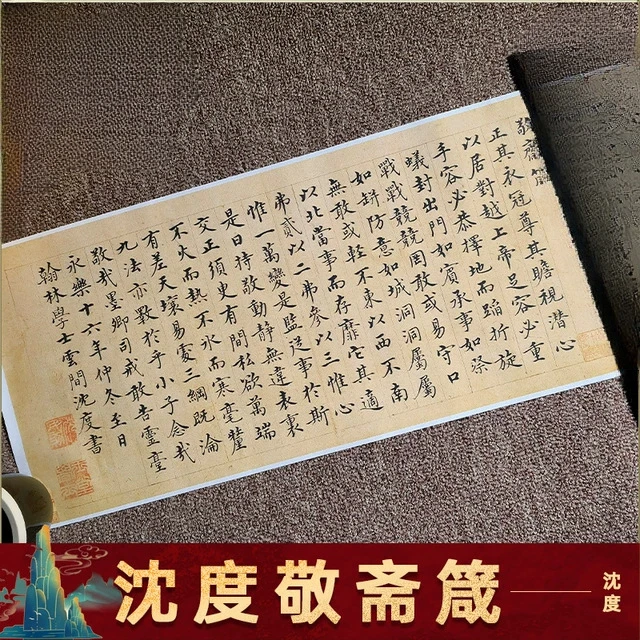 敬齋箴
正其衣冠尊其瞻視潛心
以居對越上帝足容必重
手容必恭擇地而蹈折旋
蟻封出門如賓承事如祭
戰戰兢兢罔敢或易守口
如缾防意如城洞洞屬屬
無敢或輕不東以西不南
以北當事而存靡它其適
弗貳以二弗參以三惟心
惟一萬變是監從事於斯
是曰持敬動靜無違表裏
交正須臾有間私欲萬端
不火而熱不冰而寒毫釐
有差天壤易處三綱既淪
九法亦斁於乎小子念哉
敬哉墨卿司戒敢告靈臺
永樂十六年仲冬至日
翰林學士雲間沈度書
沈度敬斋箴
沈度